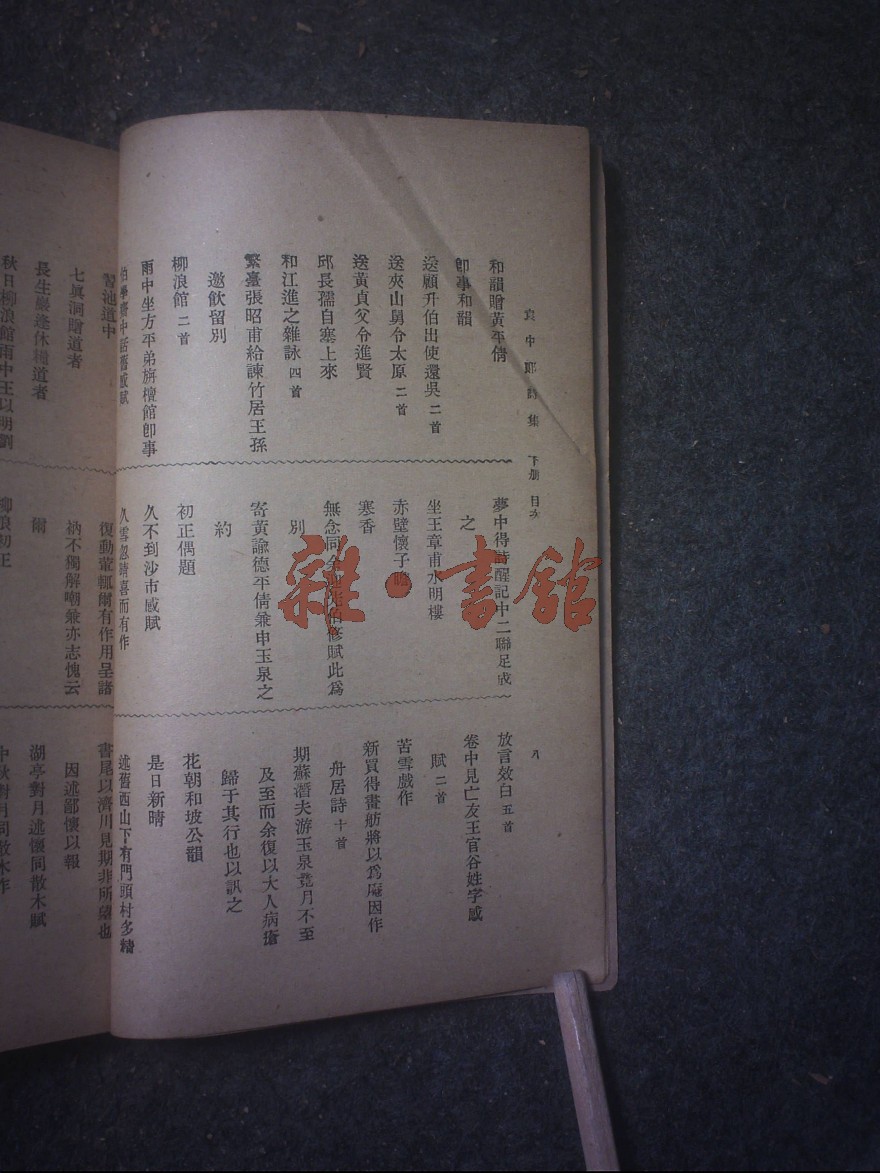 袁中郎詩集 下册 目次
八
和韻贈黃平倩
卽事和韻
送顧升伯出使還吳 二首
送夾山舅令太原 二首
送黃貞父令進賢
邱長孺自塞上來
和江進之雜詠 四首
繁臺張昭甫給諫竹居王孫
邀飲留別
柳浪館 二首
雨中坐方平弟旃檀館卽事
伯學齋中話舊感賦
習池道中
七眞洞贈道者
長生巖逢休糧道者
秋日柳浪館雨中王以明劉
夢中得詩醒記中二聯足成
之
坐王章甫水明樓
赤壁懷子瞻
寒香
無念同余
伯修賦此爲
別
寄黃諭德平倩兼申玉泉之
約
初正偶題
久不到沙市感賦
久雪忽晴喜而有作
復動葷輒爾有作用呈諸
衲不獨解嘲兼亦志愧云
爾
柳浪初正
放言效白 五首
卷中見亡友王官谷姓字感
賦 二首
苦雪戲作
新買得畫舫將以爲庵因作
舟居詩 十首
期蘇潛夫游玉泉竟月不至
及至而余復以大人病瘡
歸于其行也以訊之
花朝和坡公韻
是日新晴
述舊西山下有門頭村多精
書尾以濟川見期非所望也
因述鄙懷以報
湖亭對月述懷同散木賦
中秋對月同散木作
雜·書館